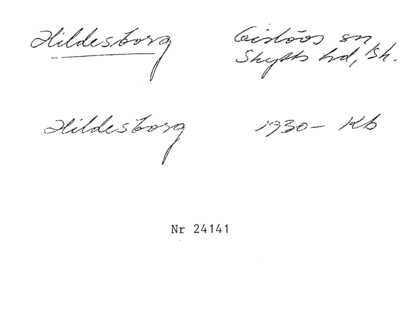 Hildesborg Gislövs sn
Skytts hd, Sk.
Hildesborg 1930– Kb
Nr 24141